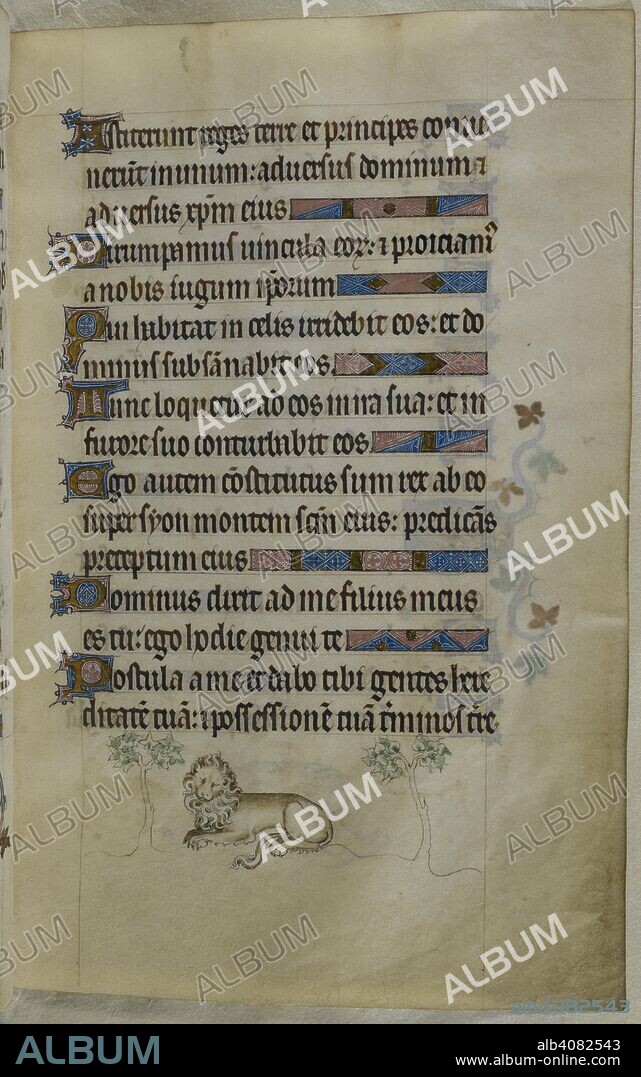 Astiterunt reges terre et principes conue
nerūt in unum: aduersus dominum ⁊
aduersus xp̄m eius
Dirumpamus uincula eoꝝ: ⁊ proiciamꝰ
a nobis iugum ip̄orum
Qui habitat in celis irridebit eos: et do
minus subsānabit eos.
Tunc loquetur ad eos in ira sua: et in
furore suo conturbabit eos
Ego autem cōstitutus sum rex ab eo
super syon montem sc̄m eius: predicās
preceptum eius
Dominus dixit ad me filius meus
es tu: ego hodie genui te
Postula a me et dabo tibi gentes here
ditatē tuā: ⁊ possessionē tuā t̄minos t̄re
ALBUM
alb4082543
www.album-online.com